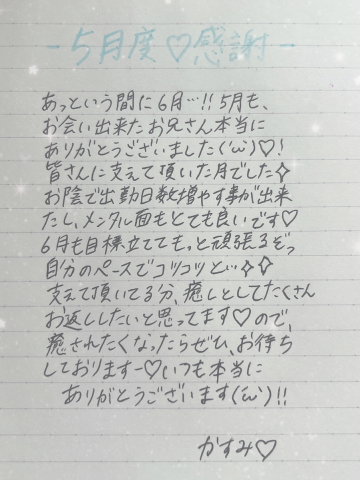 -5月度♡感謝-
あっという間に6月…!! 5月も、
お会い出来たお兄さん本当に
ありがとうございました('ω')♡!
皆さんに支えて頂いた月でした✧
お陰で出勤日数増やす事が出来
たし、メンタル面もとても良いです♡
6月も目標立ててもっと頑張るぞっ
自分のペースでコツコツと…✧✧
支えて頂いてる分、癒しとしてたくさん
お返ししたいと思ってます♡ので、
癒されたくなったらぜひ、お待ち
しておりますー♡いつも本当に
ありがとうございます('ω')!!
かすみ♡